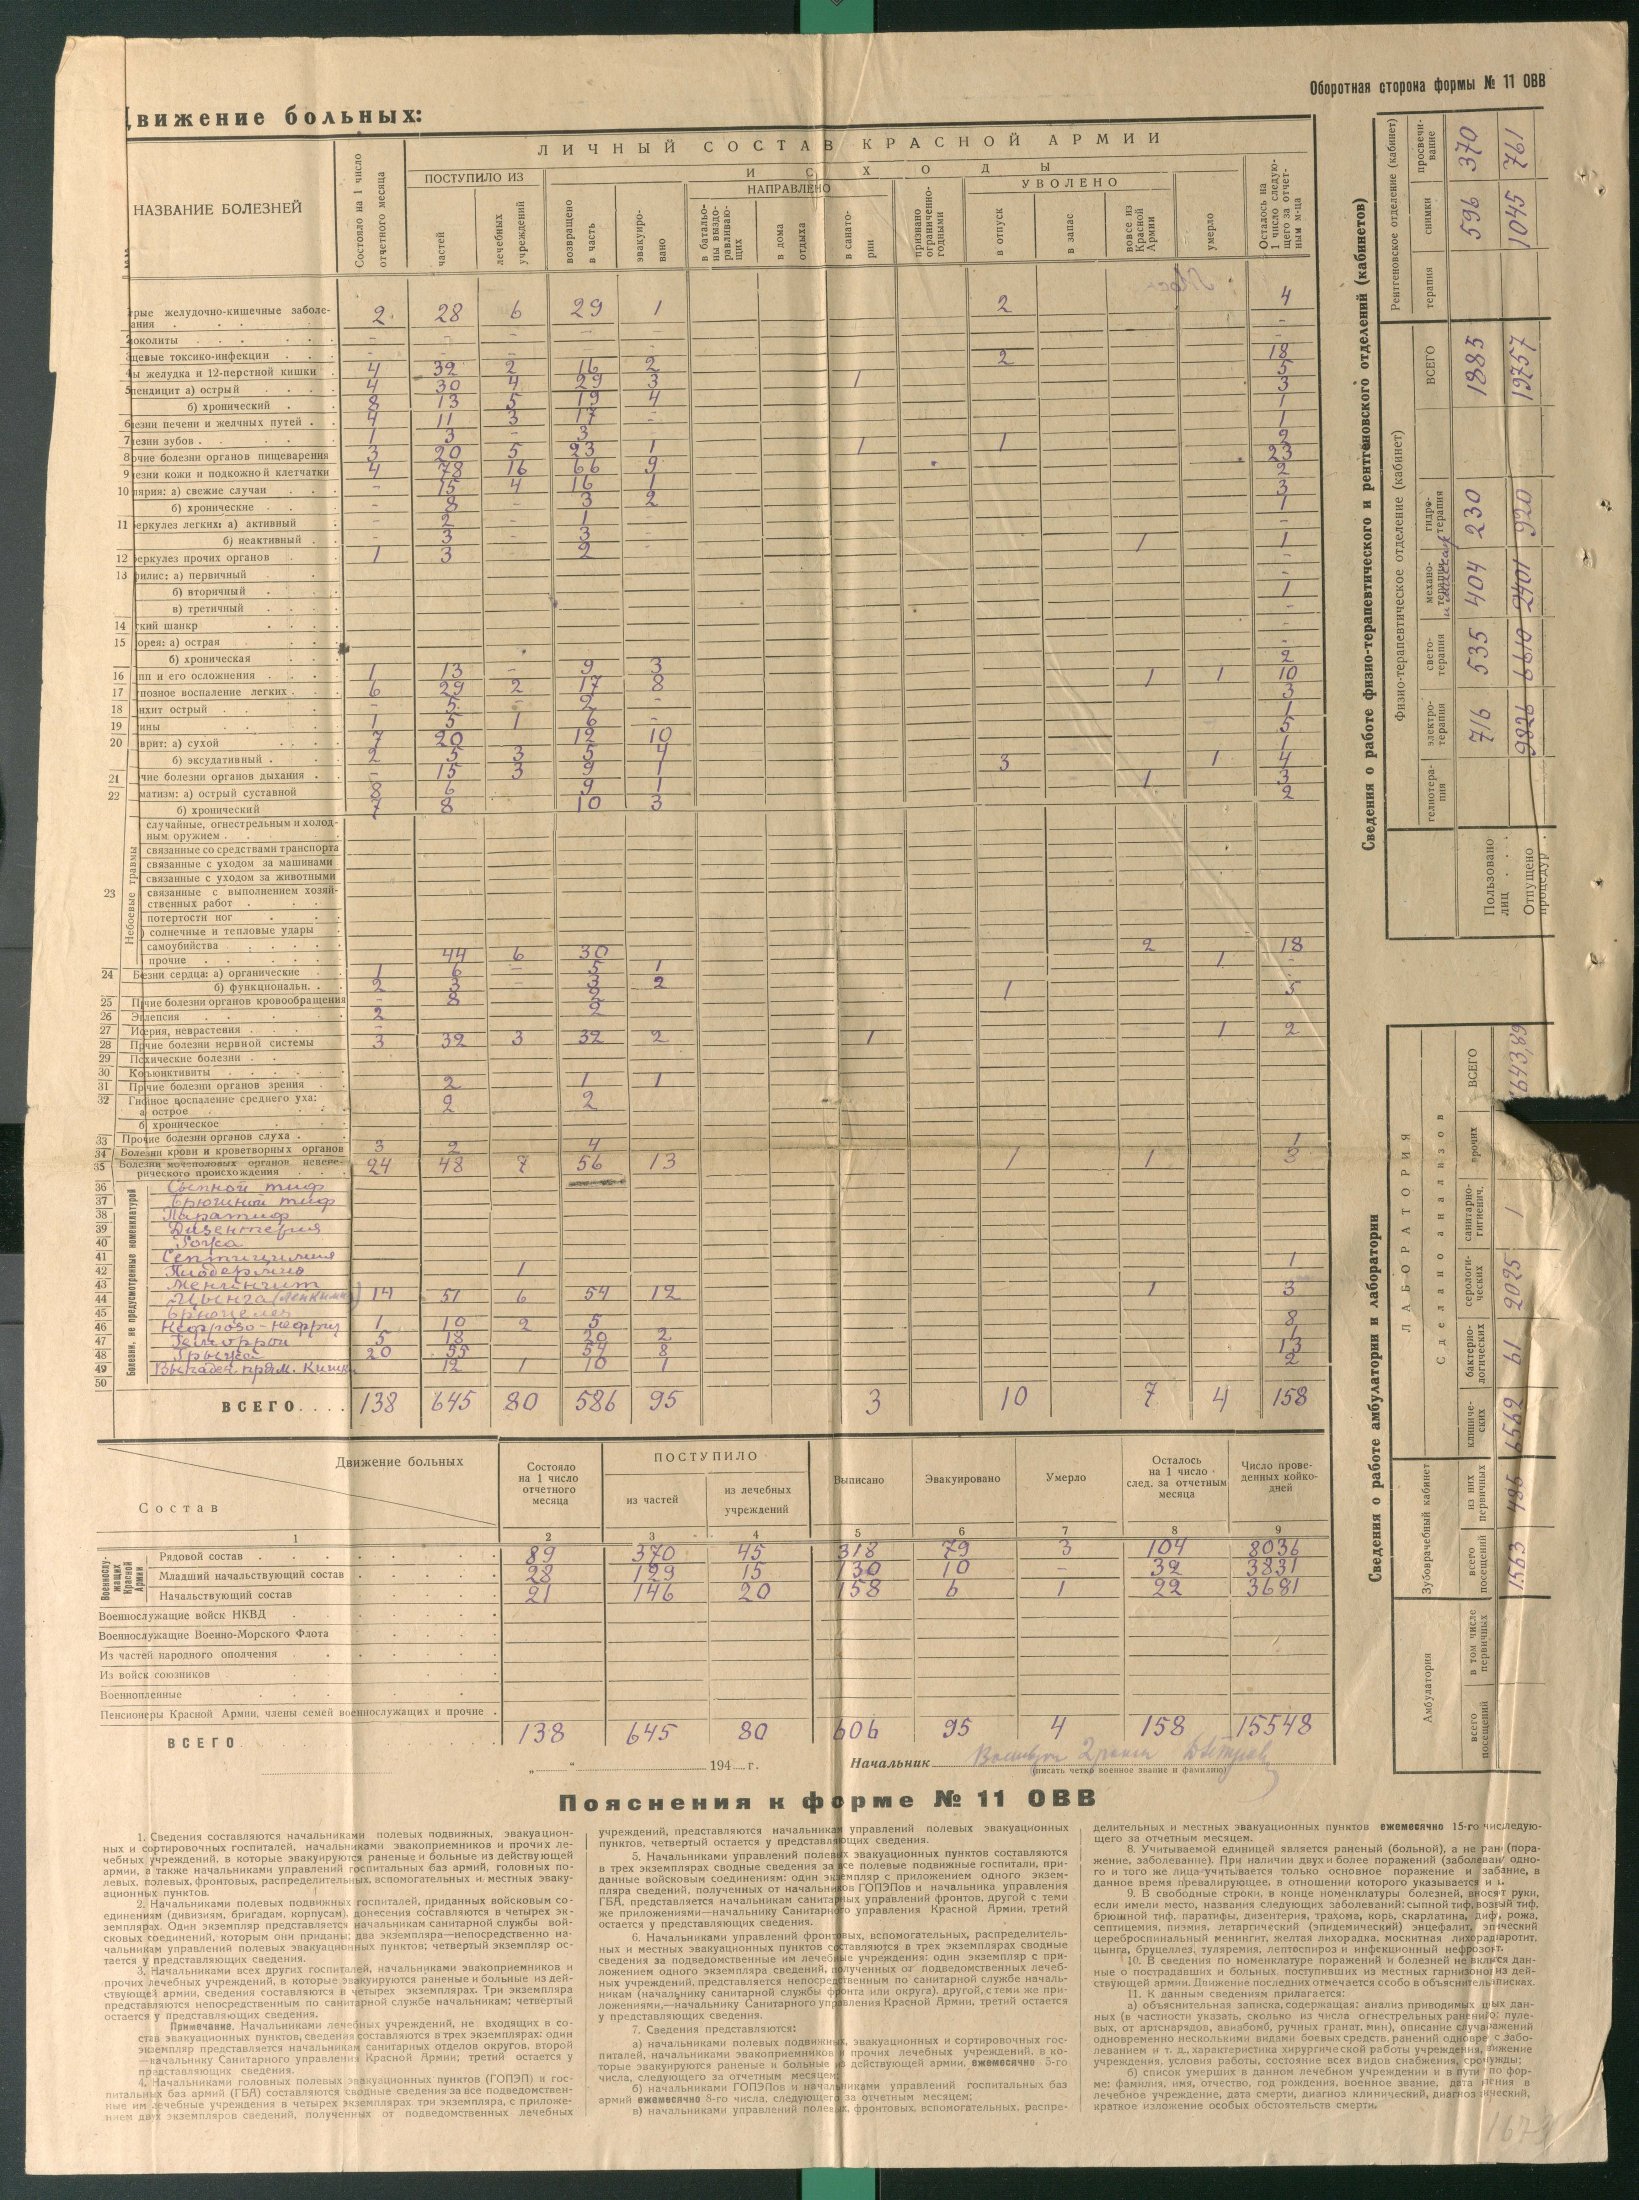 Оборотная сторона формы № 11 ОВВ
Движение больных:
ЛИЧНЫЙ СОСТАВ КРАСНОЙ АРМИИ
НАЗВАНИЕ БОЛЕЗНЕЙ
Состояло на 1 число отчетного месяца
ПОСТУПИЛО ИЗ
частей
лечебных учреждений
ИСХОДЫ
возвращено в часть
эвакуиро-вано
НАПРАВЛЕНО
в батальо-ны выздо-равливаю-щих
в дома отдыха
в санато-рии
признано ограниченно-годными
УВОЛЕНО
в отпуск
в запас
вовсе из Красной Армии
умерло
Осталось на 1 число следую-щего за отчет-ным м-ца
трые желудочно-кишечные заболе-
вания 2 28 6 29 1 2 4
околиты - - - - -
щевые токсико-инфекции - - -
ы желудка и 12-перстной кишки 4 32 2 16 2 2 18
пендицит а) острый 4 30 4 29 3 1 5
б) хронический 8 13 5 19 4 3
езни печени и желчных путей 4 11 3 17 - 1
езни зубов 1 3 - 3 1
очие болезни органов пищеварения 3 20 5 23 1 1 1 2
езни кожи и подкожной клетчатки 4 78 16 66 9 23
10 лярия: а) свежие случаи - 15 4 16 1 2
б) хронические - 8 - 3 2 3
11 беркулез легких: а) активный - 2 - 1 - 1
б) неактивный - 3 - 3 - -
12 беркулез прочих органов 1 3 2 1 1
13 филис: а) первичный
б) вторичный
в) третичный 1
14 гкий шанкр
15 орея: а) острая
б) хроническая
16 пп и его осложнения 1 13 - 9 3 2
17 позное воспаление легких 6 29 2 17 8 1 1 10
18 нхит острый - 5 - 2 - 3
19 ины 1 5 1 6 - 1
20 врит: а) сухой 7 20 12 10 5
б) эксудативный 2 5 3 5 4 1
21 чие болезни органов дыхания - 15 3 9 1 3 1 4
22 матизм: а) острый суставной 8 6 9 1 1 3
б) хронический 7 8 10 3 2
23
Небоевые травмы
случайные, огнестрельным и холод-
ным оружием
связанные со средствами транспорта
связанные с уходом за машинами
связанные с уходом за животными
связанные с выполнением хозяй-
ственных работ
потертости ног
солнечные и тепловые удары
самоубийства
прочие 44 6 30 2 18
24 Безни сердца: а) органические 1 6 - 5 1 1 -
б) функциональн. 2 3 - 3 2
25 Прчие болезни органов кровообращения - 8 2 1 5
26 Эплепсия 2 2
27 Исерия, неврастения -
28 Прчие болезни нервной системы 3 32 3 32 2 1 1 2
29 Психические болезни
30 Коъюнктивиты
31 Прчие болезни органов зрения 2 1 1
32 Гнойное воспаление среднего уха:
а) острое 2 2
б) хроническое
33 Прочие болезни органов слуха
34 Болезни крови и кроветворных органов 3 2 4 1
35 Болезни мочеполовых органов невене-
рического происхождения 24 48 7 56 13 1 1 3
Болезни, не предусмотренные номенклатурой
36 Сыпной тиф
37 Брюшной тиф
38 Паратиф
39 Дизентерия
40 Рожа
41 Септицимия
42 Пиодермия 1 1
43 Менингит
44 Цынга 14 51 6 54 12 1 3
45 Бруцелез
46 Нефрозо-нефриз 1 10 2 5 8
47 Геморрой 5 18 20 2 1
48 Грыжа 20 55 54 8 13
49 Выпаден прям. кишки 12 1 10 1 2
50
ВСЕГО 138 645 80 586 95 3 10 7 4 158
Движение больных
Состав
Состояло на 1 число отчетного месяца
ПОСТУПИЛО
из частей
из лечебных учреждений
Выписано
Эвакуировано
Умерло
Осталось на 1 число след. за отчетным месяца
Число прове-денных койко-дней
1 2 3 4 5 6 7 8 9
Военнослу-жащих Красной Армии
Рядовой состав 89 370 45 318 79 3 104 8036
Младший начальствующий состав 28 129 15 130 10 - 32 3831
Начальствующий состав 21 146 20 158 6 1 22 3681
Военнослужащие войск НКВД
Военнослужащие Военно-Морского Флота
Из частей народного ополчения
Из войск союзников
Военнопленные
Пенсионеры Красной Армии, члены семей военнослужащих и прочие
ВСЕГО 138 645 80 606 95 4 158 15548
„ “ 194 г.
Начальник
(писать четко военное звание и фамилию)
Пояснения к форме № 11 ОВВ
1. Сведения составляются начальниками полевых подвижных, эвакуацион-
ных и сортировочных госпиталей, начальниками эвакоприемников и прочих ле-
чебных учреждений, в которые эвакуируются раненые и больные из действующей
армии, а также начальниками управлений госпитальных баз армий, головных по-
левых, полевых, фронтовых, распределительных, вспомогательных и местных эваку-
ационных пунктов.
2. Начальниками полевых подвижных госпиталей, приданных войсковым со-
единениям (дивизиям, бригадам, корпусам), донесения составляются в четырех эк-
земплярах. Один экземпляр представляется начальникам санитарной службы вой-
сковых соединений, которым они приданы; два экземпляра—непосредственно на-
чальникам управлений полевых эвакуационных пунктов; четвертый экземпляр ос-
тается у представляющих сведения.
3. Начальниками всех других госпиталей, начальниками эвакоприемников и
прочих лечебных учреждений, в которые эвакуируются раненые и больные из дей-
ствующей армии, сведения составляются в четырех экземплярах. Три экземпляра
представляются непосредственным по санитарной службе начальникам; четвертый
остается у представляющих сведения.
Примечание. Начальниками лечебных учреждений, не входящих в со-
став эвакуационных пунктов, сведения составляются в трех экземплярах: один
экземпляр представляется начальникам санитарных отделов округов, второй
—начальнику Санитарного управления Красной Армии; третий остается у
представляющих сведения.
4. Начальниками головных полевых эвакуационных пунктов (ГОПЭП) и гос-
питальных баз армий (ГБА) составляются сводные сведения за все подведомствен-
ные им лечебные учреждения в четырех экземплярах три экземпляра, с приложе-
нием двух экземпляров сведений, полученных от подведомственных лечебных
учреждений, представляются начальникам управлений полевых эвакуационных
пунктов, четвертый остается у представляющих сведения.
5. Начальниками управлений полевых эвакуационных пунктов составляются
в трех экземплярах сводные сведения за все полевые подвижные госпитали, при-
данные войсковым соединениям: один экземпляр с приложением одного экзем-
пляра сведений, полученных от начальников ГОПЭПов и начальника управления
ГБА, представляется начальникам санитарных управлений фронтов, другой с теми
же приложениями—начальнику Санитарного управления Красной Армии, третий
остается у представляющих сведения.
6. Начальниками управлений фронтовых, вспомогательных, распределитель-
ных и местных эвакуационных пунктов составляются в трех экземплярах сводные
сведения за подведомственные им лечебные учреждения: один экземпляр с при-
ложением одного экземпляра сведений, полученных от подведомственных лечеб-
ных учреждений, представляется непосредственным по санитарной службе началь-
никам (начальнику санитарной службы фронта или округа), другой, с теми же при-
ложениями,—начальнику Санитарного управления Красной Армии, третий остается
у представляющих сведения.
7. Сведения представляются:
а) начальниками полевых подвижных, эвакуационных и сортировочных гос-
питалей, начальниками эвакоприемников и прочих лечебных учреждений, в ко-
торые эвакуируются раненые и больные из действующей армии, ежемесячно 5-го
числа, следующего за отчетным месяцем;
б) начальниками ГОПЭПов и начальниками управлений госпитальных баз
армий ежемесячно 8-го числа, следующего за отчетным месяцем;
в) начальниками управлений полевых, фронтовых, вспомогательных, распре-
делительных и местных эвакуационных пунктов ежемесячно 15-го числ следую-
щего за отчетным месяцем.
8. Учитываемой единицей является раненый (больной), а не ран (пора-
жение, заболевание). При наличии двух и более поражений (заболеван одно-
го и того же лица учитывается только основное поражение и за бание, в
данное время превалирующее, в отношении которого указывается и
9. В свободные строки, в конце номенклатуры болезней, вносят руки,
если имели место, названия следующих заболеваний: сыпной тиф, возвый тиф,
брюшной тиф, паратифы, дизентерия, трахома, корь, скарлатина, диф, рожа,
септицемия, пиэмия, летаргический (эпидемический) энцефалит, эпический
цереброспинальный менингит, желтая лихорадка, москитная лихорад аротит,
цынга, бруцеллез, туляремия, лептоспироз и инфекционный нефрозо т.
10. В сведения по номенклатуре поражений и болезней не вкл ся дан-
ные о пострадавших и больных, поступивших из местных гарнизоно из дей-
ствующей армии. Движение последних отмечается особо в объяснитель писках.
11. К данным сведениям прилагается:
а) объяснительная записка, содержащая: анализ приводимых ых дан-
ных (в частности указать, сколько из числа огнестрельных ранени : пуле-
вых, от артснарядов, авиабомб, ручных гранат, мин), описание случ ажений
одновременно несколькими видами боевых средств, ранений одновре с забо-
леванием и т. д., характеристика хирургической работы учреждения, вижение
учреждения, условия работы, состояние всех видов снабжения, сро нужды;
б) список умерших в данном лечебном учреждении и в пути по фор-
ме: фамилия, имя, отчество, год рождения, военное звание, дата пения в
лечебное учреждение, дата смерти, диагноз клинический, диагноз ический,
краткое изложение особых обстоятельств смерти.
1673
Сведения о работе физио-терапевтического и рентгеновского отделений (кабинетов)
Физио-терапевтическое отделение (кабинет)
Рентгеновское отделение (кабинет)
гелиотера-пия
электро-терапия
свето-терапия
механо-терапия
гидро-терапия
ВСЕГО
терапия
снимки
просвечи-вание
Пользовано лиц 716 535 404 230 1885 596 370
Отпущено процедур 9826 6610 2401 920 19757 1045 761
Сведения о работе амбулатории и лаборатории
Амбулатория
Зубоврачебный кабинет
ЛАБОРАТОРИЯ
Сделано анализов
всего посещений
в том числе первичных
всего посещений
из них первичных
клиниче-ских
бактерио-логических
серологи-ческих
санитарно-гигиенич.
прочих
ВСЕГО
1563 486 6562 61 2025 1